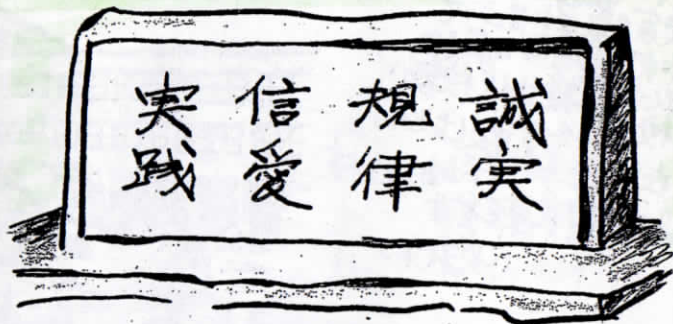 誠実
規律
信愛
実践